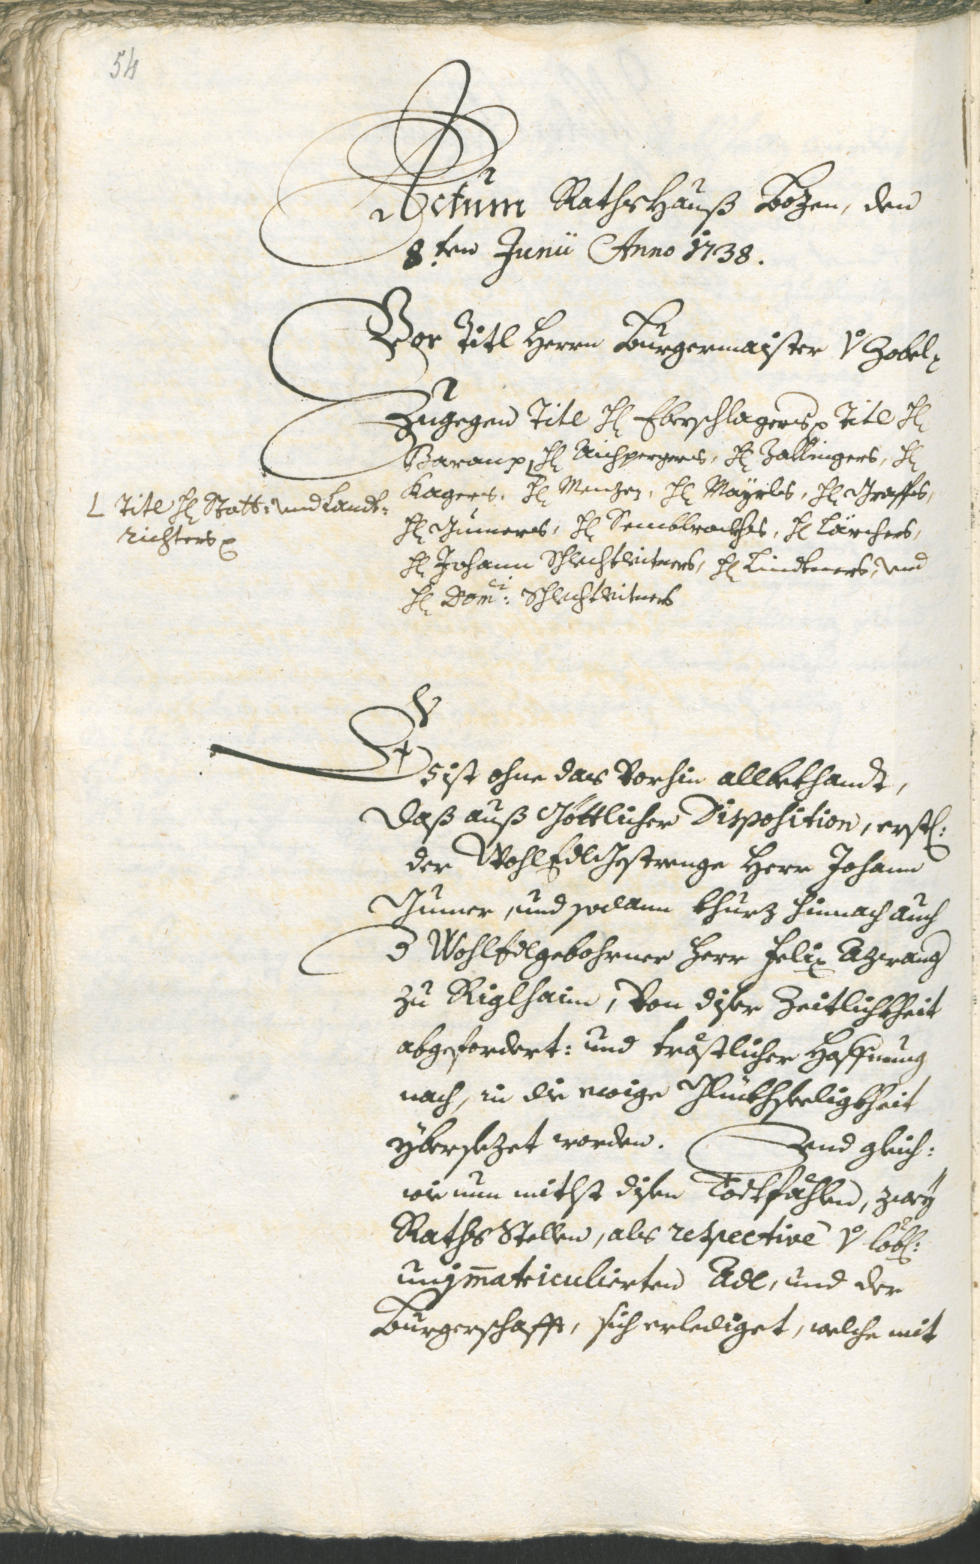 54
Actum Rathshauß Bozen, den
8.ten Junii Anno 1738.
Vor Titl Herrn Burgermaister v Zobel
Zugegen Title H: Eberschlagers Title H:
L Title H: Statt: und Landt:
richters
H: Aichpergers, H: Zallingers, H:
Kagers, H: Menzen, H: Mayrls, H: Graffs,
H: Gumers, H: H: Lärchers,
H: Johann Schlechtleitners, H: Lindtners, und
H: Domci: Schlechtleitners
Es ist ohne das Vorhin allbekhandt,
daß auß Göttlicher Disposition, erstl:
der WohlEdlGestrenge Herr Johann
Gumer, und sodann khurz hinnach auch
d WohlEdlgebohrner Herr Felix Azwang
zu Riglhaim, Von diser Zeitlichkheit
abgefordert: und tröstlicher Hoffnung
nach, in die ewige Glückhseeligkheit
ybersezet worden. Und gleich:
wie nun mitlst disen Todtfählen, zwey
Raths Stellen, als respective v löbl:
unimmatriculierten Adl, und der
Burgerschafft, sich erlediget, welche mit